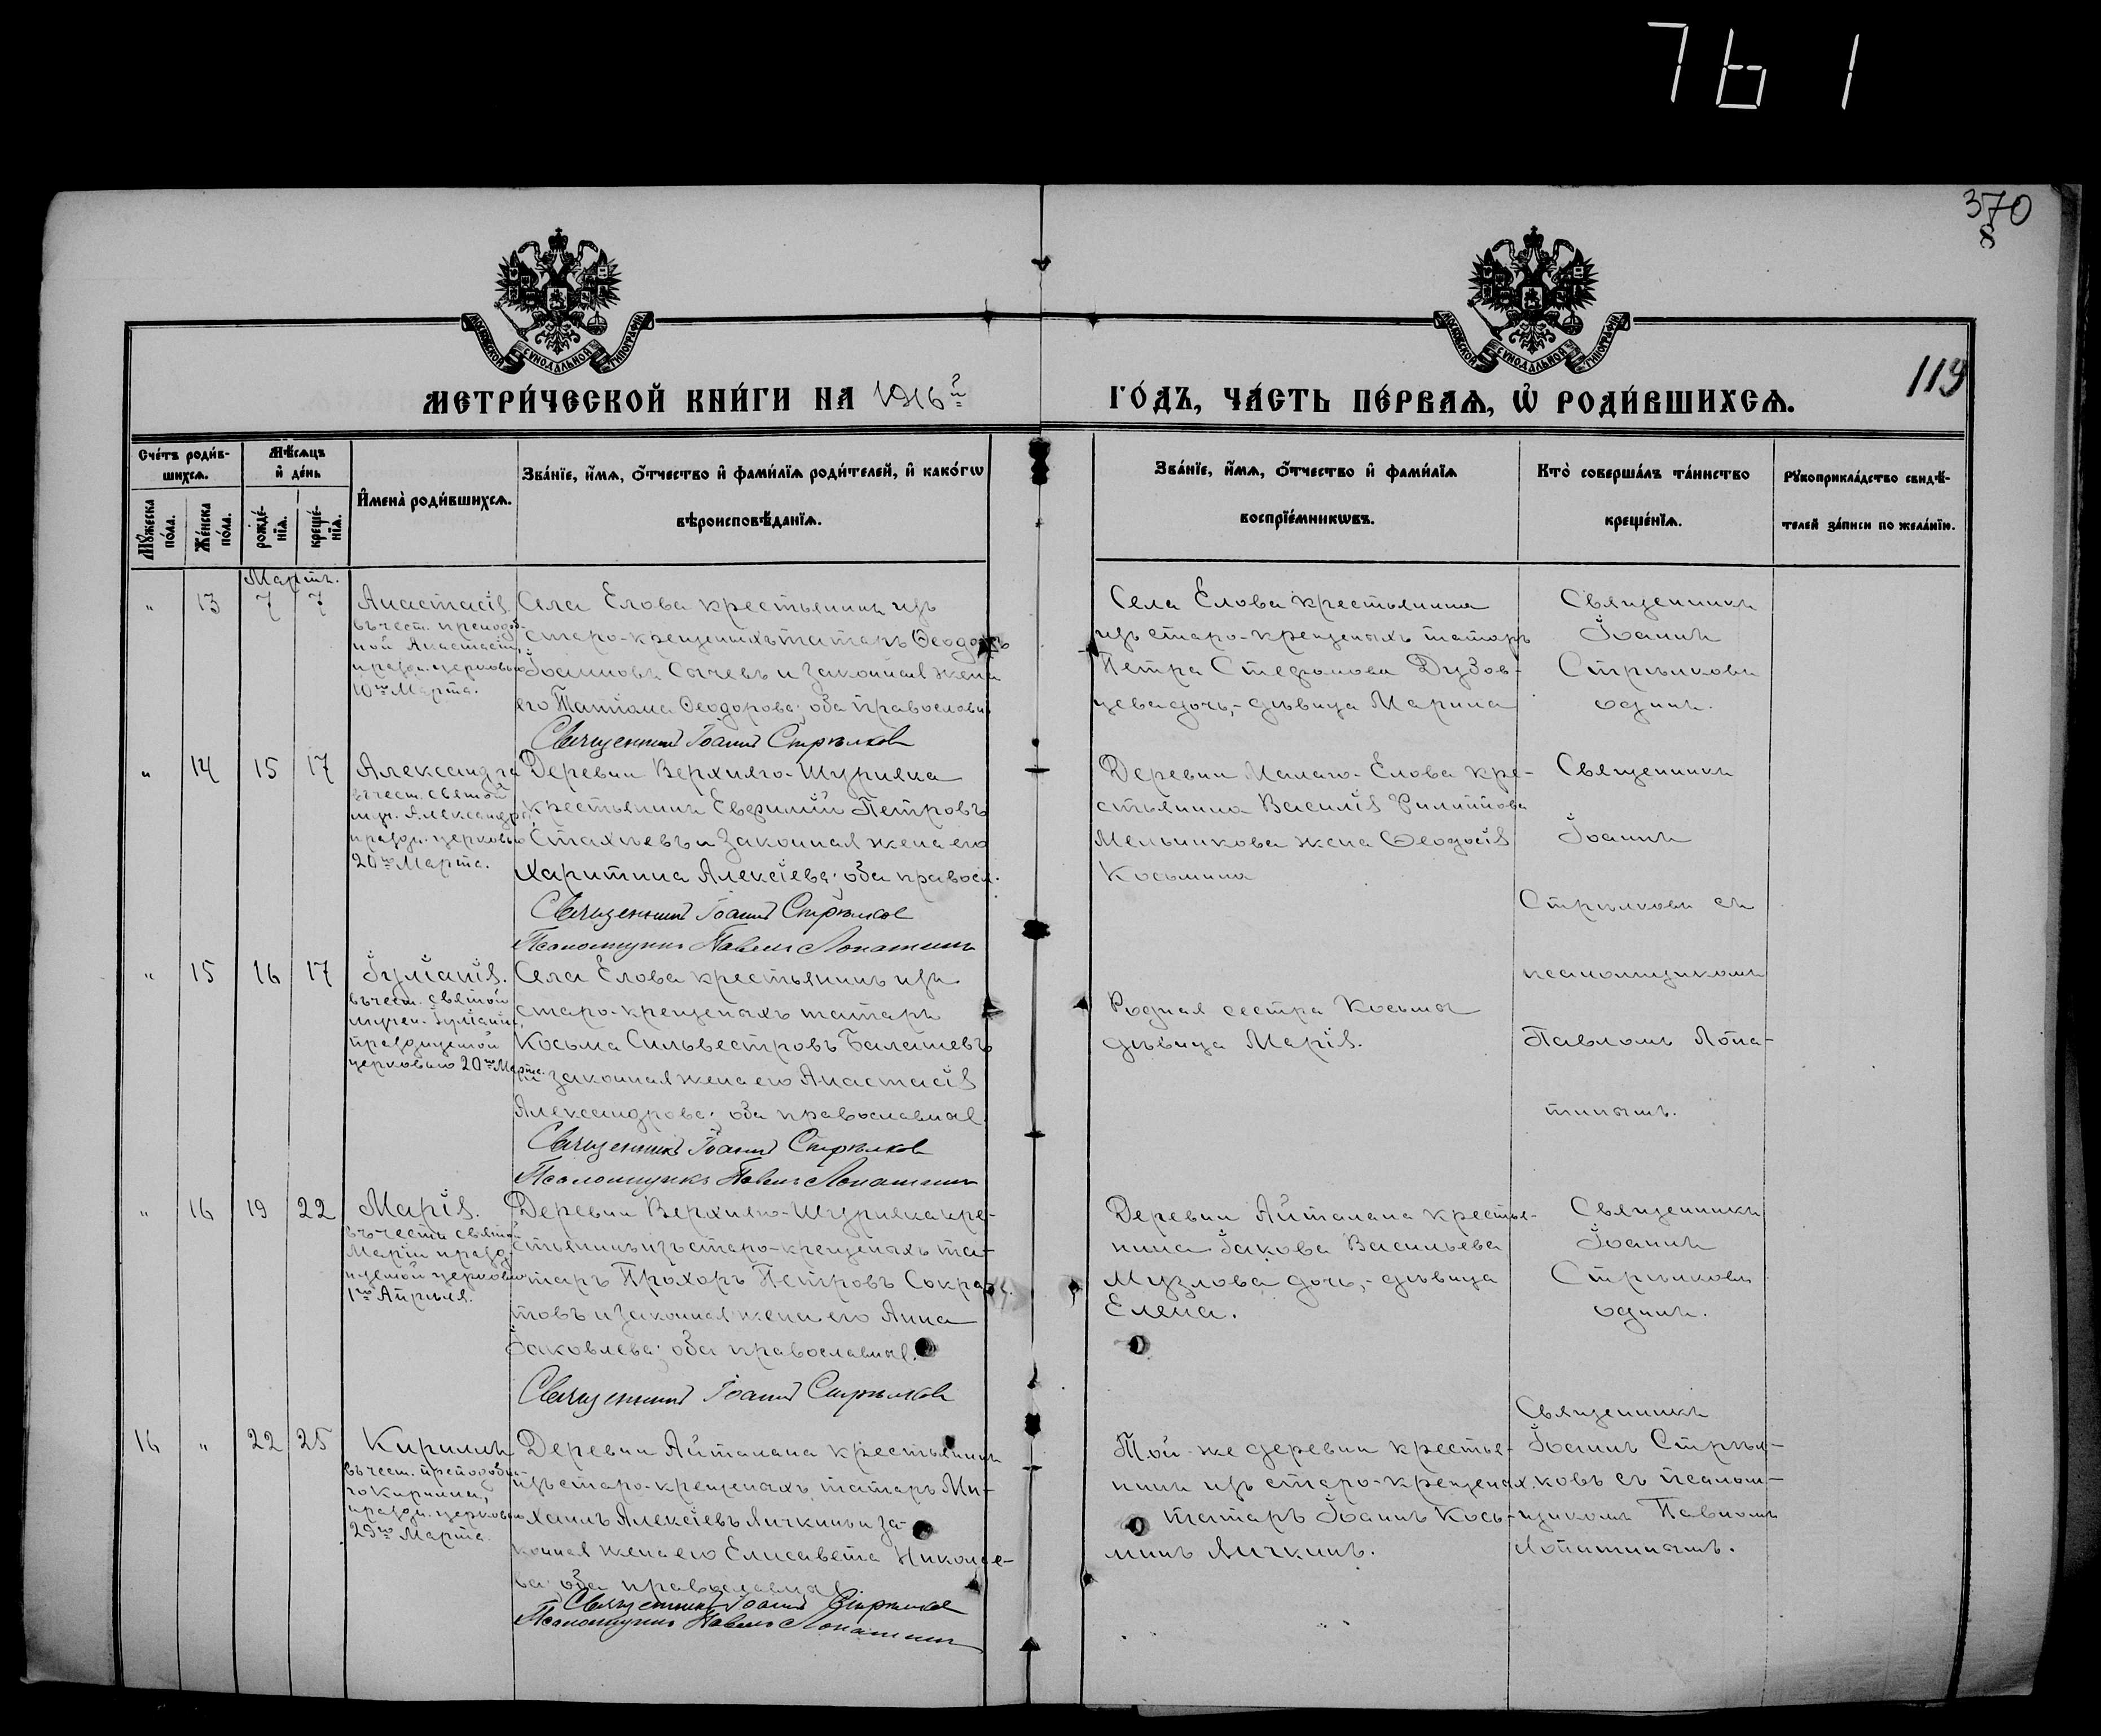 761
370
8
119
МОСКОВСКОЙ СѴНОДАЛЬНОЙ ТИПОГРАФІИ
МОСКОВСКОЙ СѴНОДАЛЬНОЙ ТИПОГРАФІИ
МЕТРИ́ЧЕСКОЙ КНИ́ГИ НА 1916й
ГО́ДЪ, ЧА́СТЬ ПЕ́РВАѦ, Ѡ҆ РОДИ́ВШИХСѦ.
Сче́тъ роди́в-
шихсѧ.
Мꙋ́жеска
по́ла.
Же́нска
по́ла.
Мѣ́сѧцъ
и҆ де́нь
рожде́-
нїѧ.
креще́-
нїѧ.
И҆мена̀ роди́вшихсѧ.
Зва́нїе, и҆́мѧ, ѻ҆́тчество и҆ фами́лїѧ роди́телей, и҆ како́гѡ
вѣроисповѣ́данїѧ.
Зва́нїе, и҆́мѧ, ѻ҆́тчество и҆ фами́лїѧ
воспрїе́мникѡвъ.
Кто̀ соверша́лъ та́инство
креще́нїѧ.
Рꙋкоприкла́дство свидѣ́-
телей за́писи по жела́нїю.
Мартъ.
" 13 7 7
Анастасія
въ чест. преподоб-
ной Анастасіи,
праздн. церковью
10го Марта.
Села Елова крестьянинъ изъ
старо-крещенныхъ татаръ Ѳеодоръ
Іоанновъ Сычевъ и законная жена
его Татіана Ѳеодорова; оба православн.
Священникъ Іоаннъ Стрѣлков
Села Елова крестьянина
изъ старо-крещеныхъ татаръ
Петра Стефанова Дузов-
цева дочь,- дѣвица Марина
Священникъ
Іоаннъ
Стрѣлковъ
одинъ.
" 14 15 17
Александра
въ чест. святой
муч. Александры,
праздн. церковью
20го Марта.
Деревни Верхняго-Шурияка
крестьянинъ Евфимій Петровъ
Стахѣевъ и законная жена его
Харитина Алексіева; оба правосл.
Священникъ Іоаннъ Стрѣлков
Псаломщикъ Павелъ Лопатинъ
Деревни Малаго-Елова кре-
стьянина Василія Филиппова
Мельникова жена Ѳеодосія
Косьмина
Священникъ
Іоаннъ
Стрѣлковъ съ
псаломщикомъ
Павломъ Лопа-
тинымъ.
" 15 16 17
Іуліанія.
въ чест. святой
мучен. Іуліаніи,
празднуемой
церковью 20го Марта.
Села Елова крестьянинъ изъ
старо-крещеныхъ татаръ
Косьма Сильвестровъ Балашевъ
и законная жена его Анастасія
Александрова; оба православные.
Священникъ Іоаннъ Стрѣлков
Псаломщикъ Павелъ Лопатинъ
Родная сестра Косьмы
дѣвица Марія.
" 16 19 22
Марія.
въ честь святой
Маріи празд-
нуемой церковью
1го Апрѣля.
Деревни Верхняго-Шурияка кре-
стьянинъ изъ старо-крещеныхъ та-
таръ Прохоръ Петровъ Сокра-
товъ и законная жена его Анна
Іаковлева; оба православные.
Священникъ Іоаннъ Стрѣлковъ
Деревни Айталана крестья-
нина Іакова Васильева
Музлова дочь,- дѣвица
Елена.
Священникъ
Іоаннъ
Стрѣлковъ
одинъ.
16 " 22 25
Кириллъ
въ чест. преподобна-
го Кирилла,
праздн. церковью
29го Марта
Деревни Айталана крестьянинъ
изъ старо-крещеныхъ татаръ Ми-
хаилъ Алексіевъ Яичкинъ и за-
конная жена его Елисавета Николае-
ва; оба православные
Священникъ Іоаннъ Стрѣлков
Псаломщикъ Павелъ Лопатинъ
Той-же деревни крестья-
нинъ изъ старо-крещеных.
татаръ Іоаннъ Кось-
минъ Яичкинъ.
Священникъ
Іоаннъ Стрѣл-
ковъ съ псалом-
щикомъ Павломъ
Лопатинымъ.